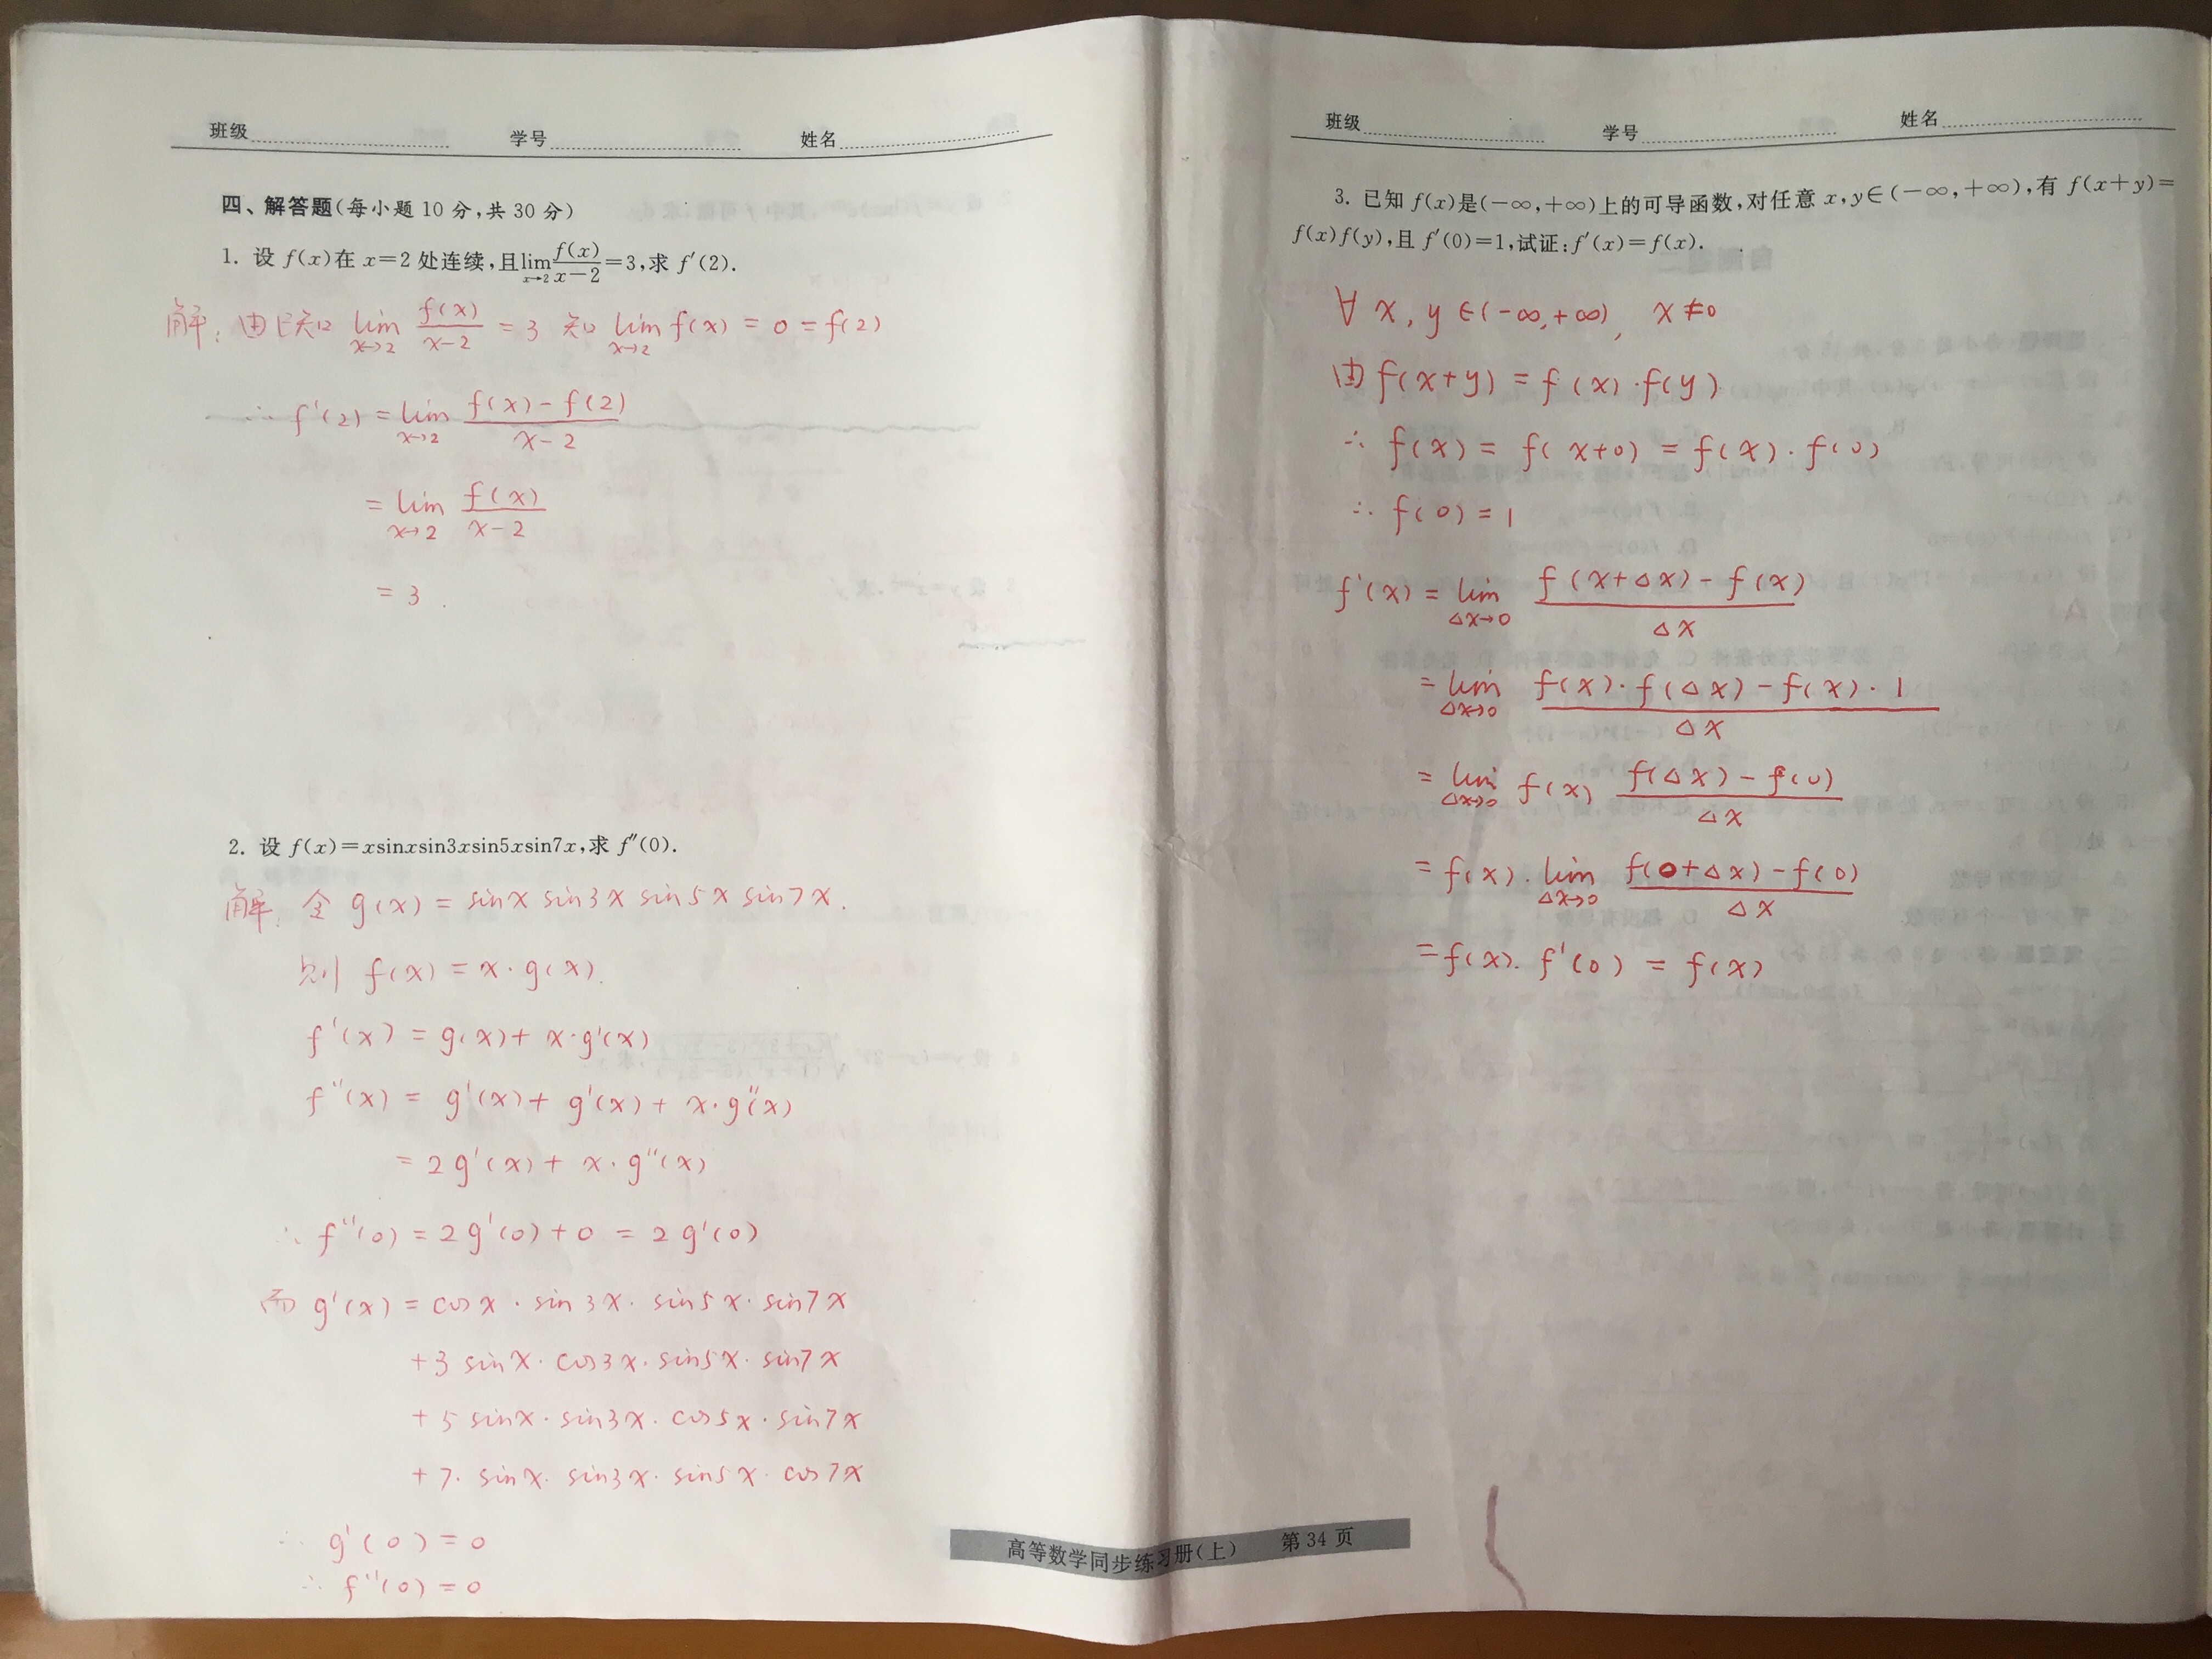 班级 学号 姓名
四、解答题(每小题10分,共30分)
1. 设 f(x)在 x=2 处连续,且lim_{x→2} f(x)/(x-2)=3,求 f′(2).
解: 由已知 lim_{x→2} f(x)/(x-2) = 3 知 lim_{x→2} f(x) = 0 = f(2)
∴ f'(2) = lim_{x→2} (f(x)-f(2))/(x-2)
= lim_{x→2} f(x)/(x-2)
= 3.
2. 设 f(x)=xsinxsin3xsin5xsin7x,求 f″(0).
解: 令 g(x) = sinx sin3x sin5x sin7x.
则 f(x) = x·g(x).
f'(x) = g(x)+ x·g'(x)
f''(x) = g'(x)+ g'(x)+ x·g''(x)
= 2g'(x)+ x·g''(x)
∴ f''(0) = 2g'(0)+0 = 2g'(0)
而 g'(x) = cosx · sin3x · sin5x · sin7x
+3 sinx · cos3x · sin5x · sin7x
+5 sinx · sin3x · cos5x · sin7x
+7· sinx · sin3x · sin5x · cos7x
∴ g'(0) = 0
∴ f''(0) = 0
班级 学号 姓名
3. 已知 f(x)是(-∞,+∞)上的可导函数,对任意 x,y∈(-∞,+∞),有 f(x+y)=
f(x)f(y),且 f′(0)=1,试证:f′(x)=f(x).
∀ x, y ∈(-∞,+∞), x≠0
由 f(x+y) = f(x)·f(y)
∴ f(x) = f(x+0) = f(x)·f(0)
∴ f(0) = 1
f'(x) = lim_{△x→0} (f(x+△x)-f(x))/△x
= lim_{△x→0} (f(x)·f(△x)-f(x)·1)/△x
= lim_{△x→0} f(x) (f(△x)-f(0))/△x
= f(x)·lim_{△x→0} (f(0+△x)-f(0))/△x
= f(x)·f'(0) = f(x)
高等数学同步练习册(上) 第34页